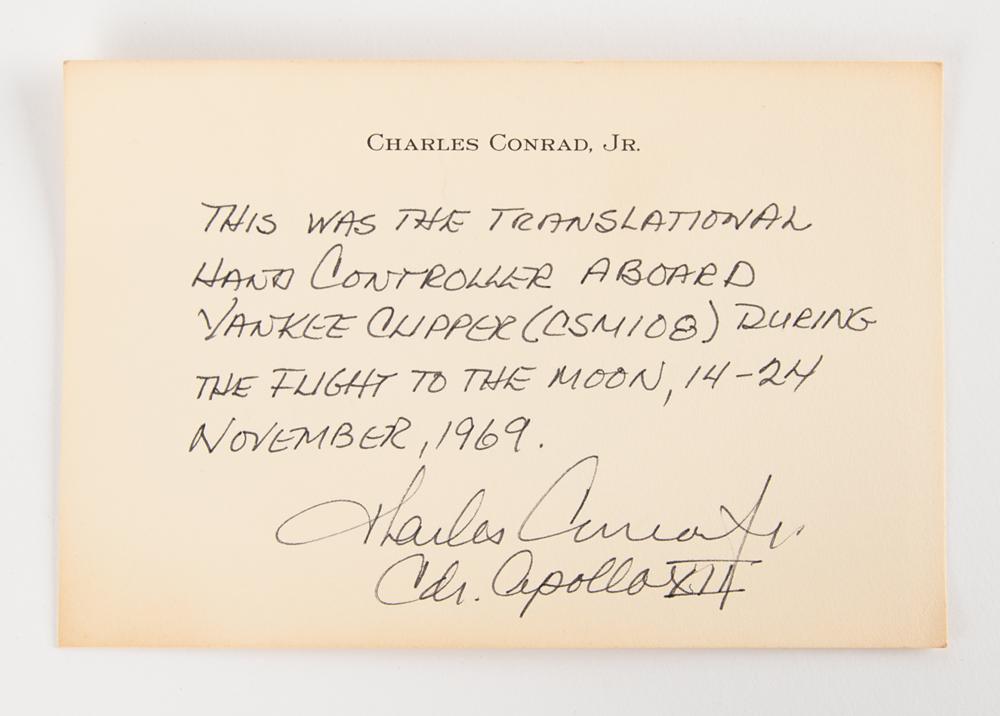 CHARLES CONRAD, JR.
THIS WAS THE TRANSLATIONAL
HAND CONTROLLER ABOARD
YANKEE CLIPPER (CSM108) DURING
THE FLIGHT TO THE MOON, 14-24
NOVEMBER, 1969.
Charles Conrad Jr.
Cdr. Apollo XII